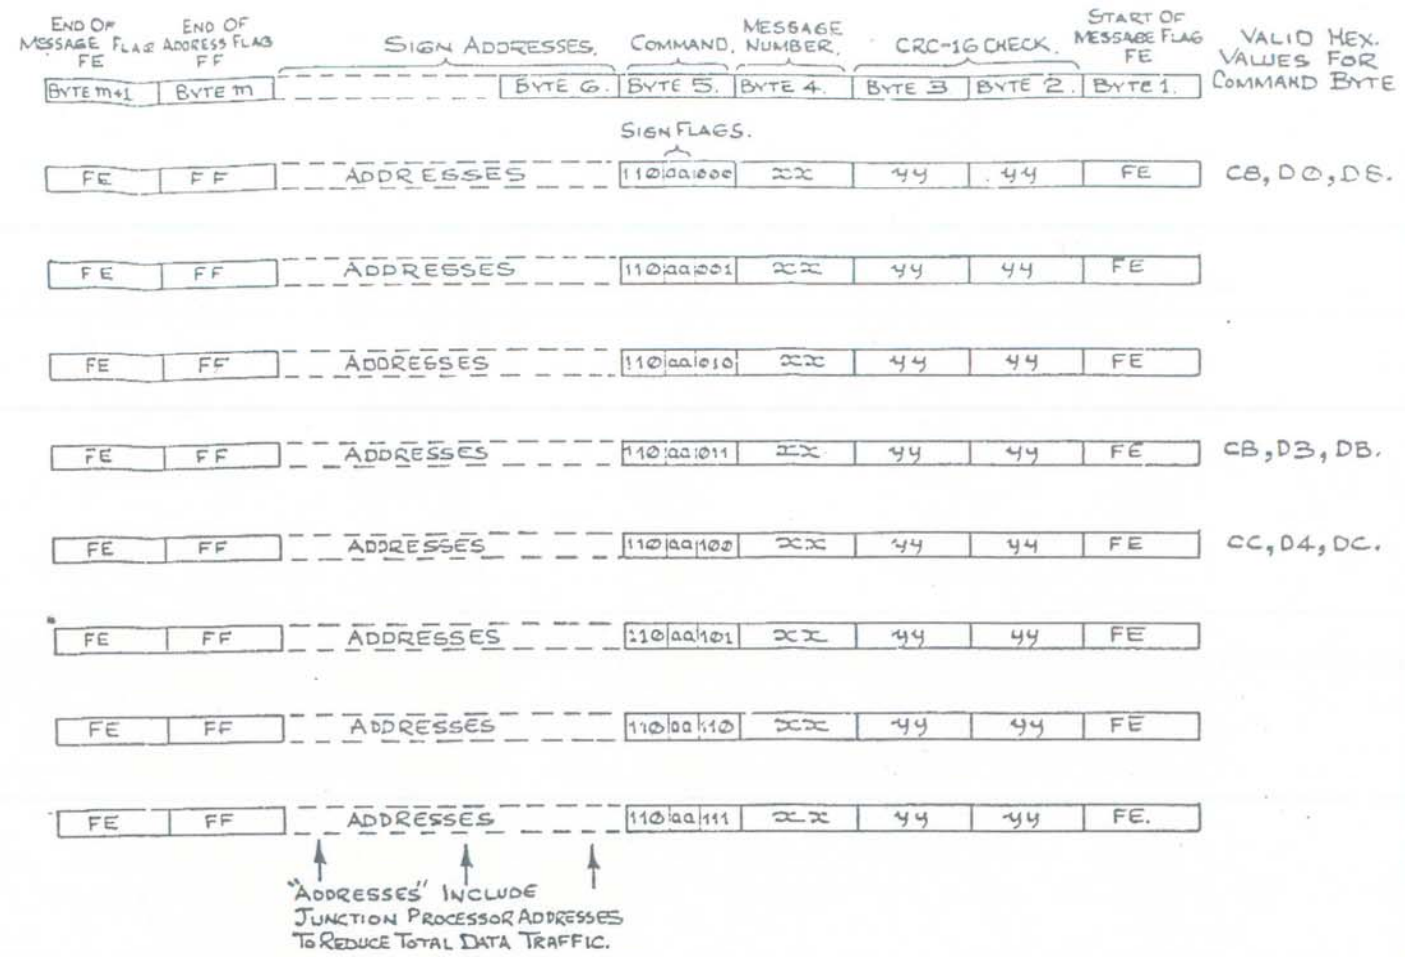 END OF MESSAGE FLAG FE
END OF ADDRESS FLAG FF
SIGN ADDRESSES.
COMMAND.
MESSAGE NUMBER.
CRC-16 CHECK.
START OF MESSAGE FLAG FE
VALID HEX. VALUES FOR COMMAND BYTE
BYTE m+1 BYTE m BYTE 6. BYTE 5. BYTE 4. BYTE 3 BYTE 2. BYTE 1.
SIGN FLAGS.
FE FF ADDRESSES 110 aa 000 xx yy yy FE C8, DØ, D8.
FE FF ADDRESSES 11Ø aa 001 xx yy yy FE
FE FF ADDRESSES 11Ø aa 010 xx yy yy FE
FE FF ADDRESSES 110 aa 011 xx yy yy FE CB, D3, DB.
FE FF ADDRESSES 11Ø aa 100 xx yy yy FE CC, D4, DC.
FE FF ADDRESSES 11Ø aa 101 xx yy yy FE
FE FF ADDRESSES 11Ø aa 11Ø xx yy yy FE
FE FF ADDRESSES 11Ø aa 111 xx yy yy FE.
"ADDRESSES" INCLUDE
JUNCTION PROCESSOR ADDRESSES
TO REDUCE TOTAL DATA TRAFFIC.